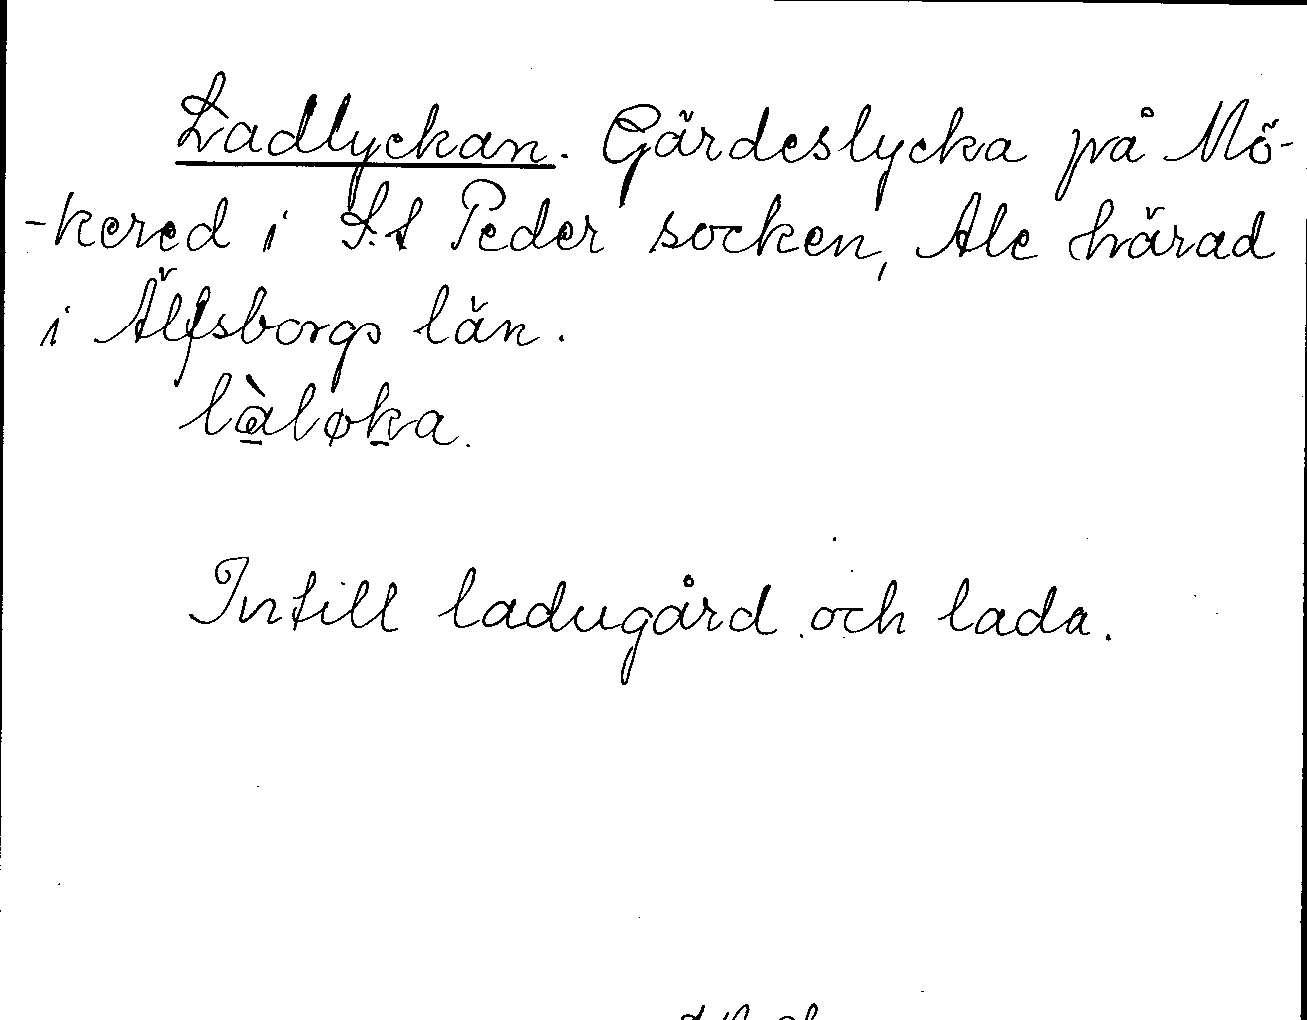 Ladlyckan. Gärdeslycka på Mö-
-kered i S:t Peder socken, Ale härad
i Älfsborgs län.
làløka.
Intill ladugård och lada.